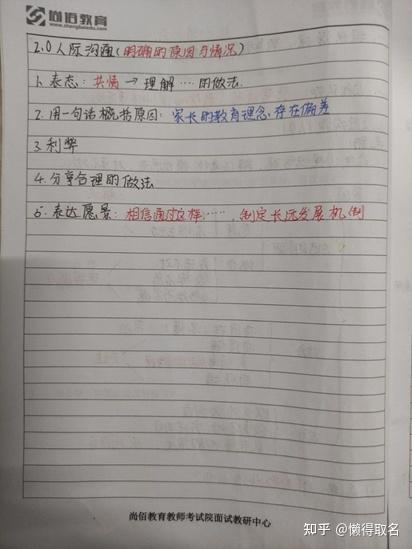 尚佰教育
www.shangbaiedu.com
2.0 人际沟通(明确的原因与情况)
1. 表态: 共情 → 理解……的做法.
2. 用一句话概括原因: 家长的教育理念存在偏差
3. 利弊
4. 分享合理的做法
5. 表达愿景: 相信通过这样……, 制定长远发展机制
尚佰教育教师考试院面试教研中心
知乎 @懒得取名